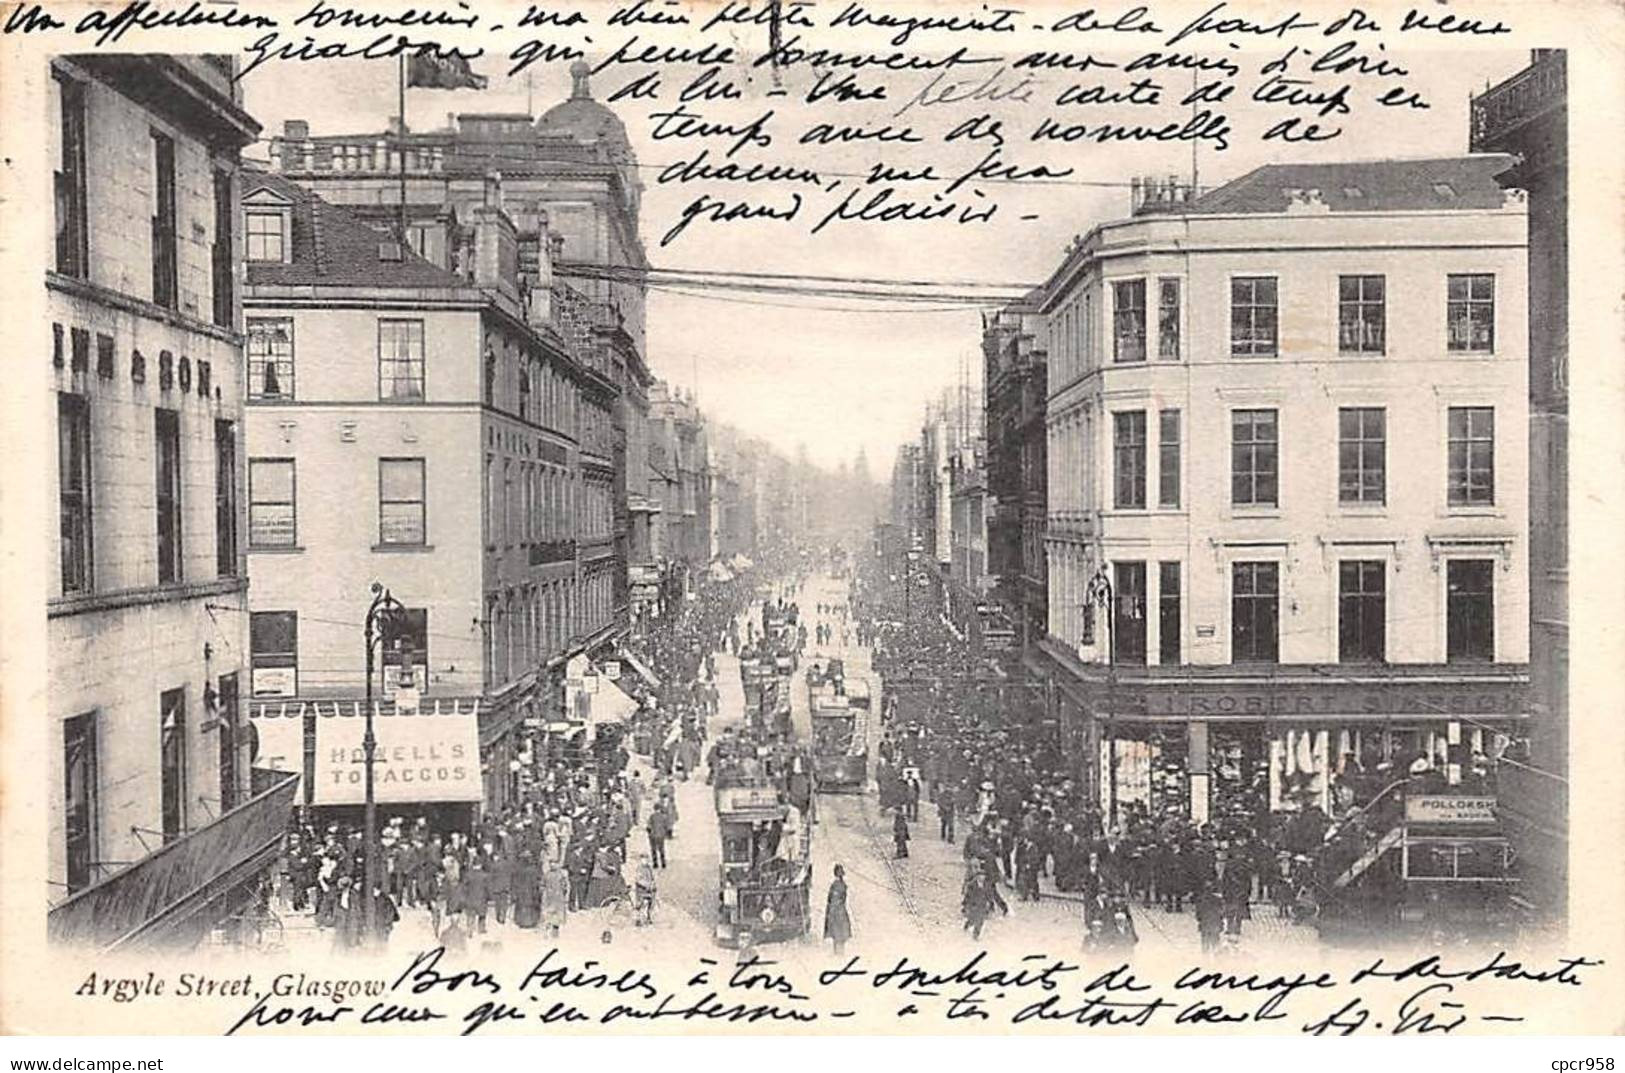 Un affectueux souvenir, ma chère petite Marguerite - de la part du vieux
qui pense souvent aux amis si loin
de lui - Une petite carte de temps en
temps avec des nouvelles de
chacun, me fera
grand plaisir -
& SON.
TEL
HOWELL'S
TOBACCOS
ROBERT
POLLOKSH
Argyle Street, Glasgow.
Bons baisers à tous & souhaits de courage & de santé
pour ceux qui en ont besoin - à toi de tout cœur
delcampe.net
cpcr958